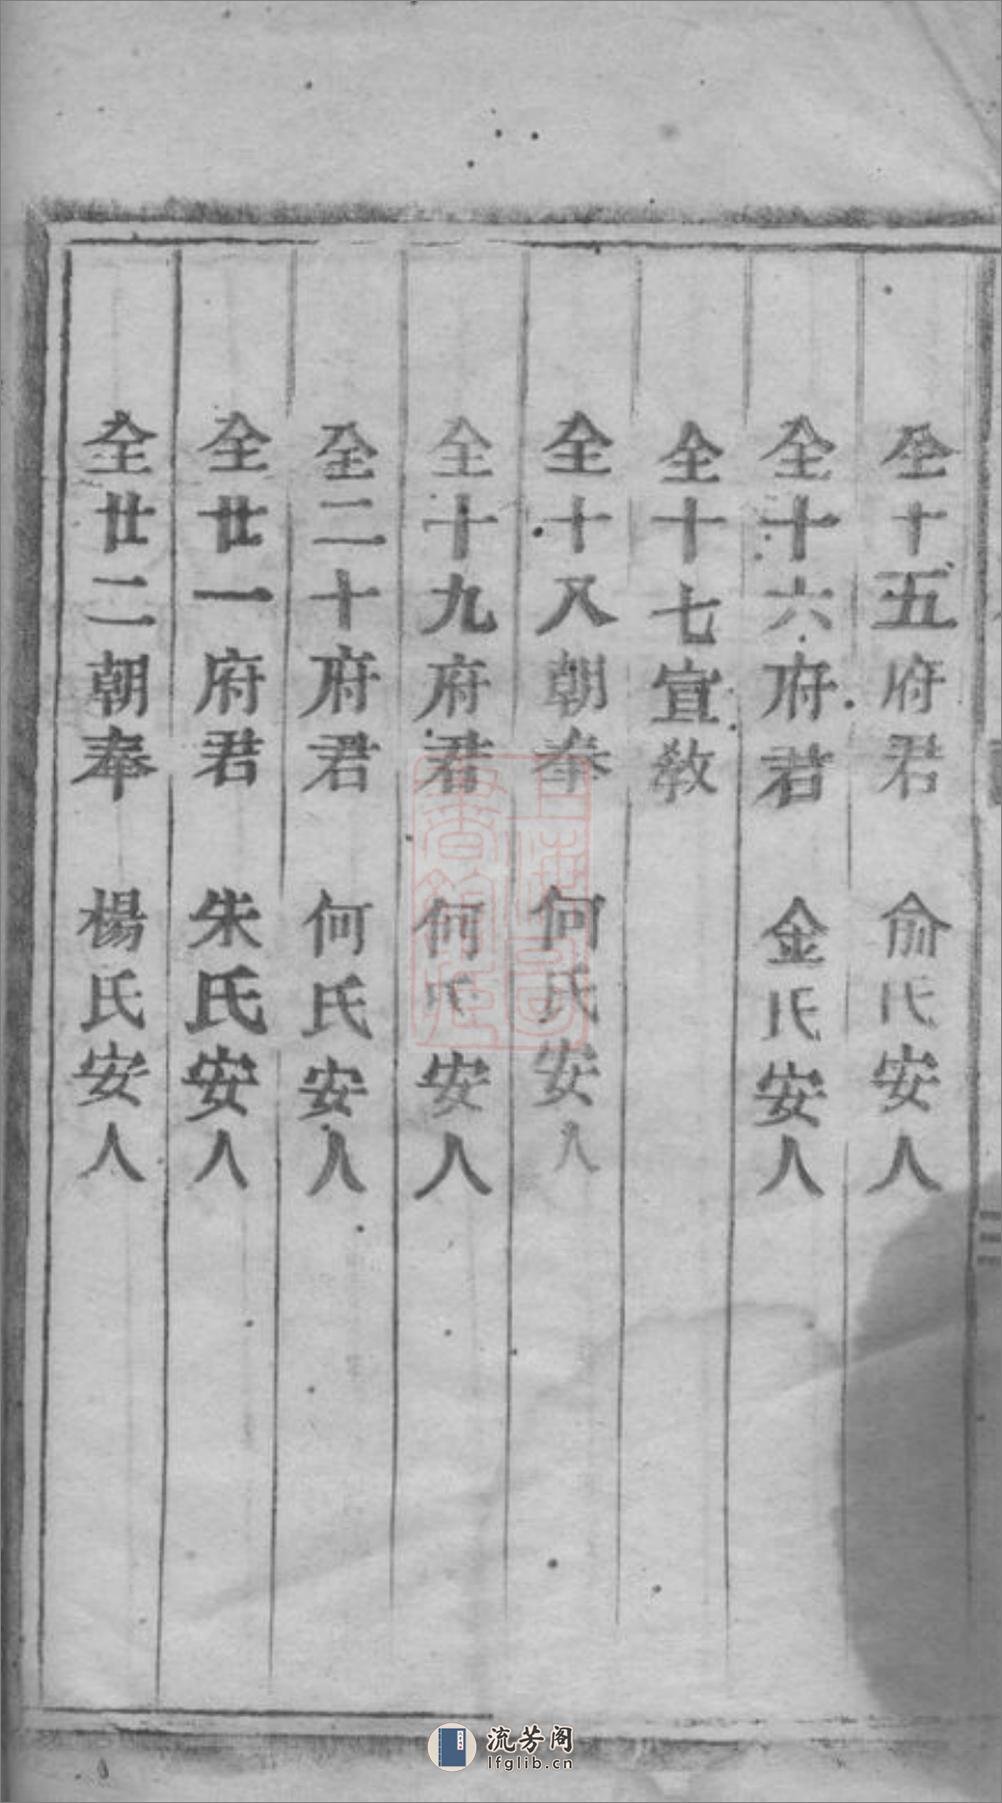 全十五府君 俞氏安人
全十六府君 金氏安人
全十七宣教
全十八朝奉 何氏安人
全十九府君 何氏安人
全二十府君 何氏安人
全廿一府君 朱氏安人
全廿二朝奉 楊氏安人
上海圖書館藏
流芳阁
lfglib.cn